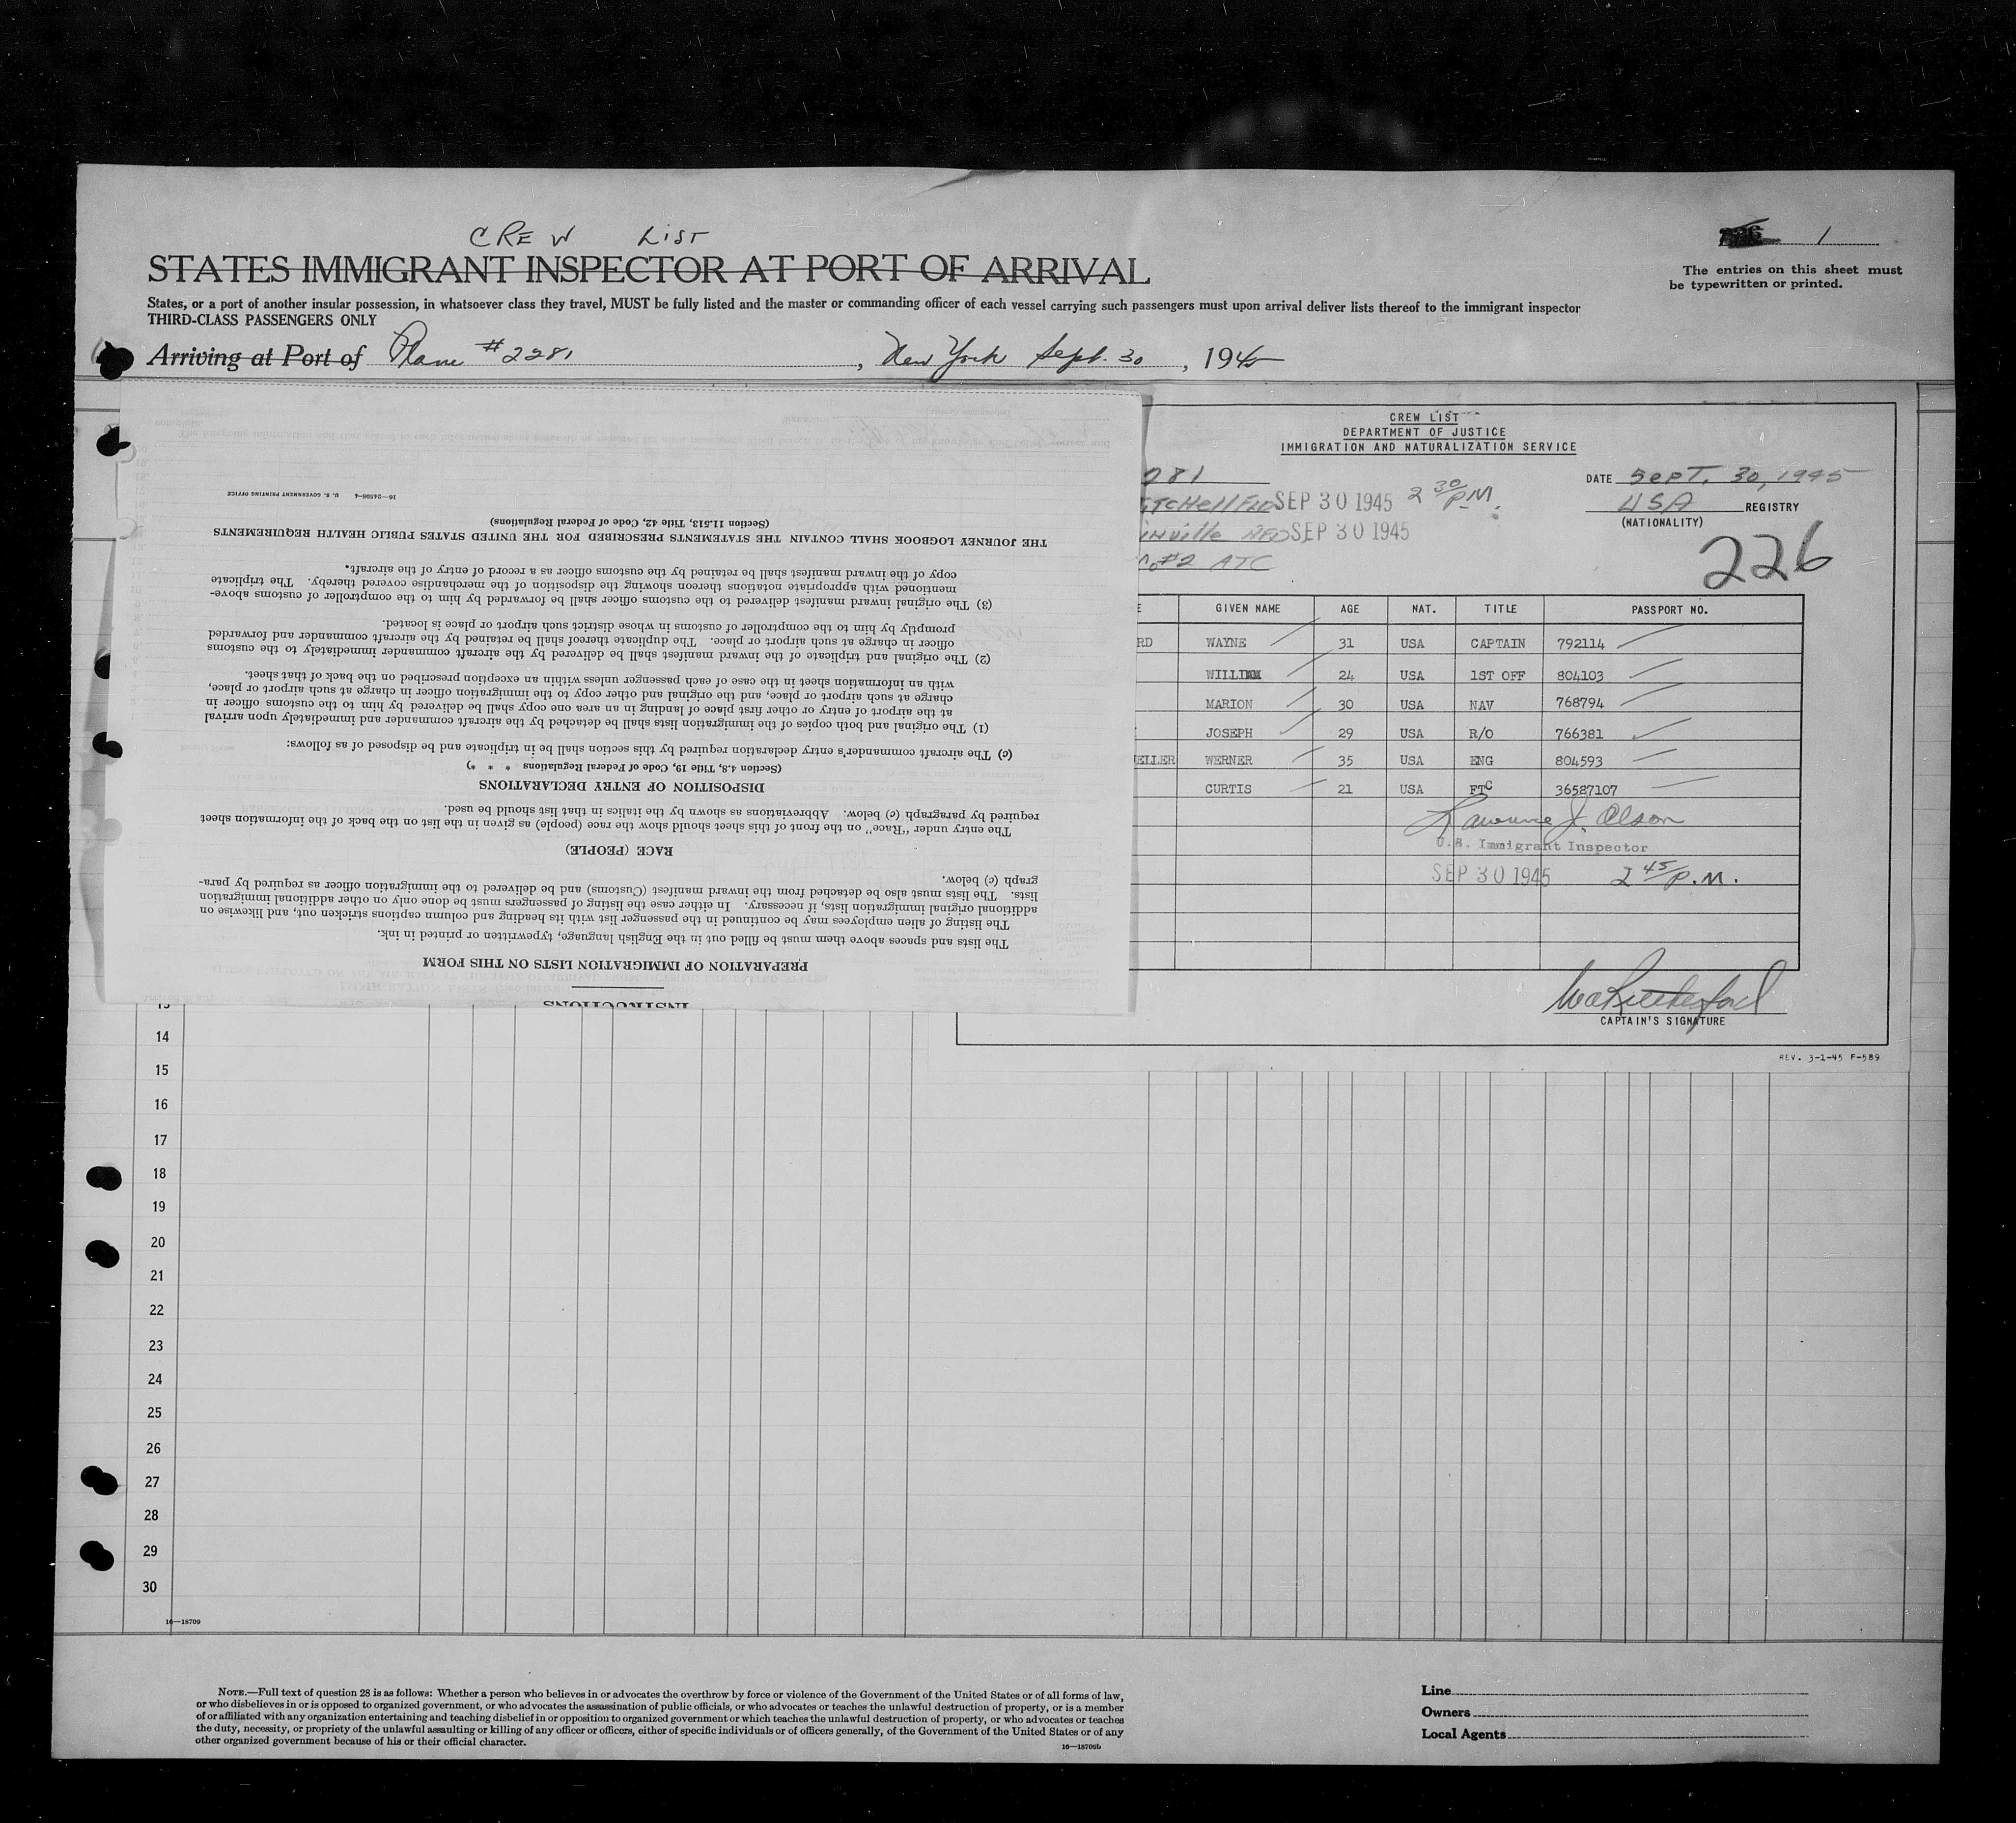 CREW LIST
STATES IMMIGRANT INSPECTOR AT PORT OF ARRIVAL
1
The entries on this sheet must
be typewritten or printed.
States, or a port of another insular possession, in whatsoever class they travel, MUST be fully listed and the master or commanding officer of each vessel carrying such passengers must upon arrival deliver lists thereof to the immigrant inspector
THIRD-CLASS PASSENGERS ONLY
Arriving at Port of Plane #2281, New York Sept. 30, 1945
CREW LIST
DEPARTMENT OF JUSTICE
IMMIGRATION AND NATURALIZATION SERVICE
281
DATE SEPT. 30, 1945
SEP 30 1945 2 30/P.M.
USA REGISTRY
(NATIONALITY)
SEP 30 1945
#2 ATC
226
GIVEN NAME AGE NAT. TITLE PASSPORT NO.
RD WAYNE 31 USA CAPTAIN 792114
24 USA 1ST OFF 804103
MARION 30 USA NAV 768794
JOSEPH 29 USA R/O 766381
ELLER WERNER 35 USA ENG 804593
CURTIS 21 USA FTC 36587107
Lawrence J. Olson
U.S. Immigrant Inspector
SEP 30 1945 2 45/P.M.
CAPTAIN'S SIGNATURE
REV. 3-1-45 F-589
INSTRUCTIONS
PREPARATION OF IMMIGRATION LISTS ON THIS FORM
The lists and spaces above them must be filled out in the English language, typewritten or printed in ink.
The listing of alien employees may be continued in the passenger list with its heading and column captions stricken out, and likewise on
additional original immigration lists, if necessary. In either case the listing of passengers must be done only on other additional immigration
lists. The lists must also be detached from the inward manifest (Customs) and be delivered to the immigration officer as required by para-
graph (c) below.
RACE (PEOPLE)
The entry under "Race" on the front of this sheet should show the race (people) as given in the list on the back of the information sheet
required by paragraph (c) below. Abbreviations as shown by the italics in that list should be used.
DISPOSITION OF ENTRY DECLARATIONS
(Section 4.8, Title 19, Code of Federal Regulations * * *)
(c) The aircraft commander's entry declaration required by this section shall be in triplicate and be disposed of as follows:
(1) The original and both copies of the immigration lists shall be detached by the aircraft commander and immediately upon arrival
at the airport of entry or other first place of landing in an area one copy shall be delivered by him to the customs officer in
charge at such airport or place, and the original and other copy to the immigration officer in charge at such airport or place,
with an information sheet in the case of each passenger unless within an exception prescribed on the back of that sheet.
(2) The original and triplicate of the inward manifest shall be delivered by the aircraft commander immediately to the customs
officer in charge at such airport or place. The duplicate thereof shall be retained by the aircraft commander and forwarded
promptly by him to the comptroller of customs in whose district such airport or place is located.
(3) The original inward manifest delivered to the customs officer shall be forwarded by him to the comptroller of customs above-
mentioned with appropriate notations thereon showing the disposition of the merchandise covered thereby. The triplicate
copy of the inward manifest shall be retained by the customs officer as a record of entry of the aircraft.
THE JOURNEY LOGBOOK SHALL CONTAIN THE STATEMENTS PRESCRIBED FOR THE UNITED STATES PUBLIC HEALTH REQUIREMENTS
(Section 11.513, Title 42, Code of Federal Regulations)
16—24598-4 U. S. GOVERNMENT PRINTING OFFICE
14
15
16
17
18
19
20
21
22
23
24
25
26
27
28
29
30
16—18709
NOTE.—Full text of question 28 is as follows: Whether a person who believes in or advocates the overthrow by force or violence of the Government of the United States or of all forms of law,
or who disbelieves in or is opposed to organized government, or who advocates the assassination of public officials, or who advocates or teaches the unlawful destruction of property, or is a member
of or affiliated with any organization entertaining and teaching disbelief in or opposition to organized government or which teaches the unlawful destruction of property, or who advocates or teaches
the duty, necessity, or propriety of the unlawful assaulting or killing of any officer or officers, either of specific individuals or of officers generally, of the Government of the United States or of any
other organized government because of his or their official character.
16—18709b
Line
Owners
Local Agents